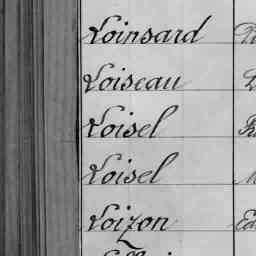 Loinsard
Loiseau
Loisel
Loisel
Loizon